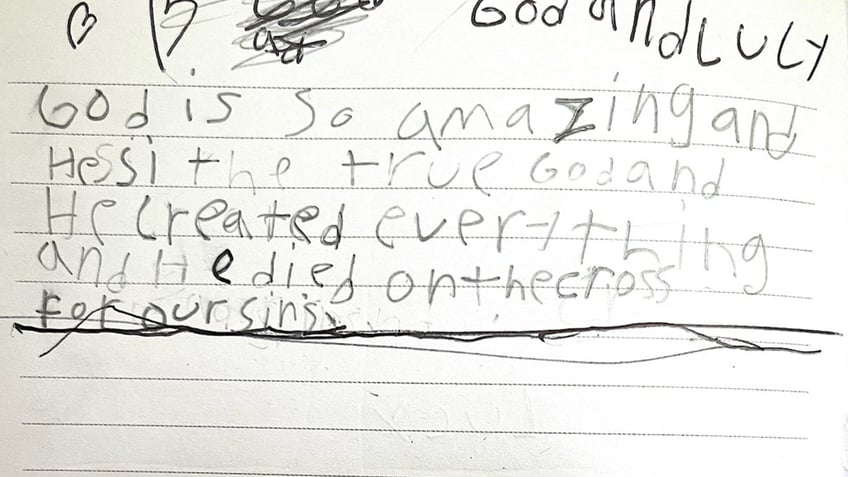 God andLULY
God is so amazing and
Hessi the true God and
He created everything
and He died on the cross
for our sins.